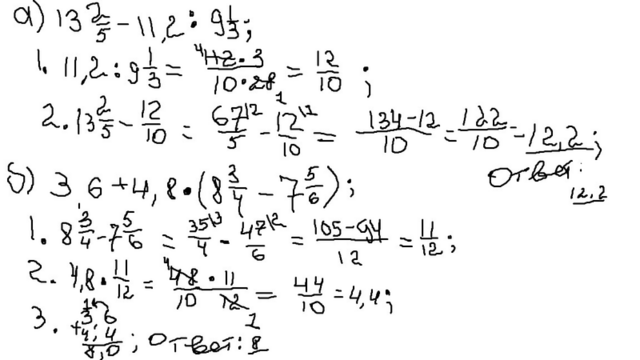 а) 13 2/5 - 11,2 : 9 1/3;
1. 11,2 : 9 1/3 = 112 · 3 / 10 · 28 = 12/10;
2. 13 2/5 - 12/10 = 67/5 - 12/10 = 134-12/10 = 122/10 = 12,2;
Ответ: 12,2
б) 3,6 + 4,8 · (8 3/4 - 7 5/6);
1. 8 3/4 - 7 5/6 = 35/4 - 47/6 = 105-94/12 = 11/12;
2. 4,8 · 11/12 = 48 · 11 / 10 12 = 44/10 = 4,4;
3. 3,6 + 4,4 8,0; Ответ: 8